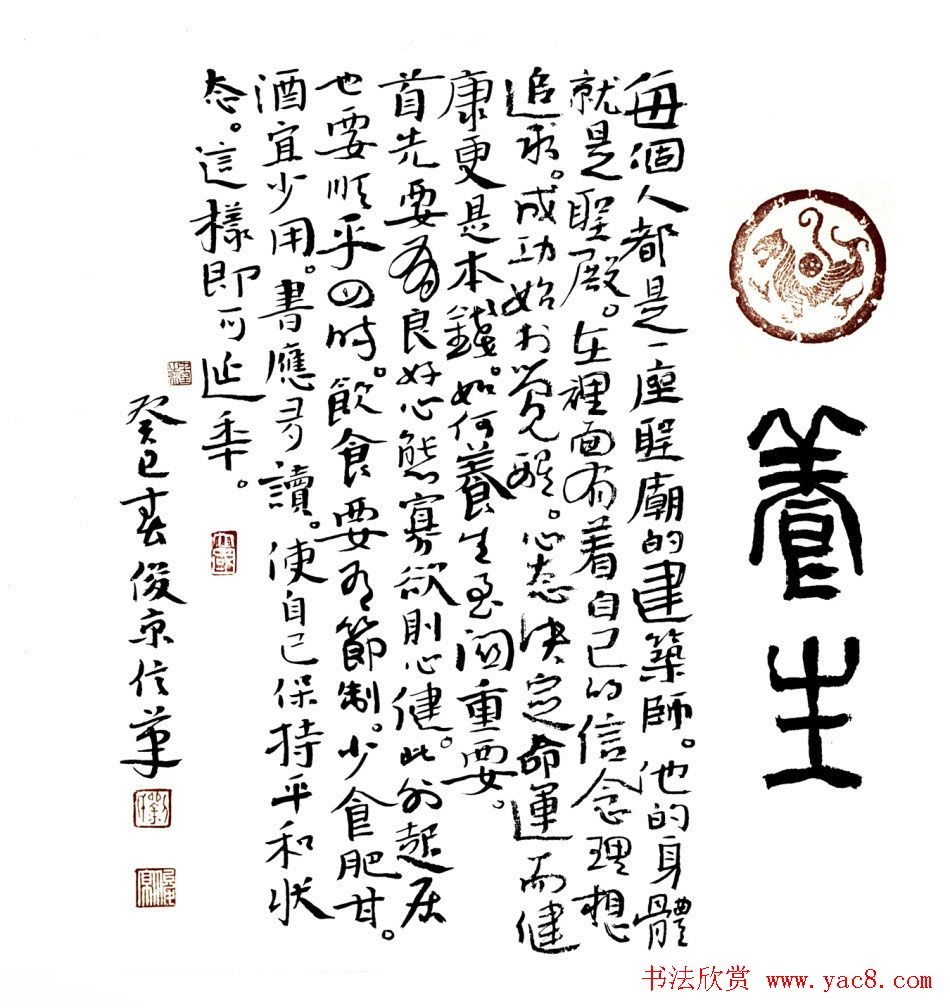 養生
每個人都是一座聖廟的建築師。他的身體
就是聖殿。在裡面有着自己的信念理想
追求。成功始於覺醒。心态决定命運而健
康更是本錢。如何養生至關重要。
首先要有良好心態寡欲則心健。此外起居
也要順乎四时。飲食要有節制。少食肥甘。
酒宜少用。書應多讀。使自己保持平和狀
态。這樣即可延年。
癸巳春俊京信筆
书法欣赏 www.yac8.com